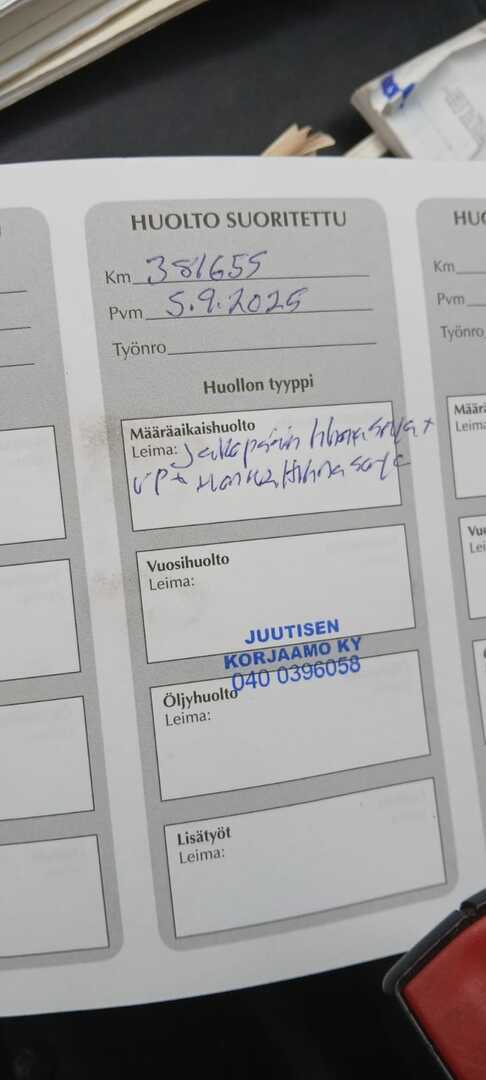 HUOLTO SUORITETTU
Km 381655
Pvm 5.9.2025
Työnro
Huollon tyyppi
Määräaikaishuolto
Leima: Jakopään hihnasarja +
VP +
Vuosihuolto
Leima:
JUUTISEN
KORJAAMO KY
040 0396058
Öljyhuolto
Leima:
Lisätyöt
Leima:
HUO
Km
Pvm
Työnro
Määrä
Leima
Vuo
Lei